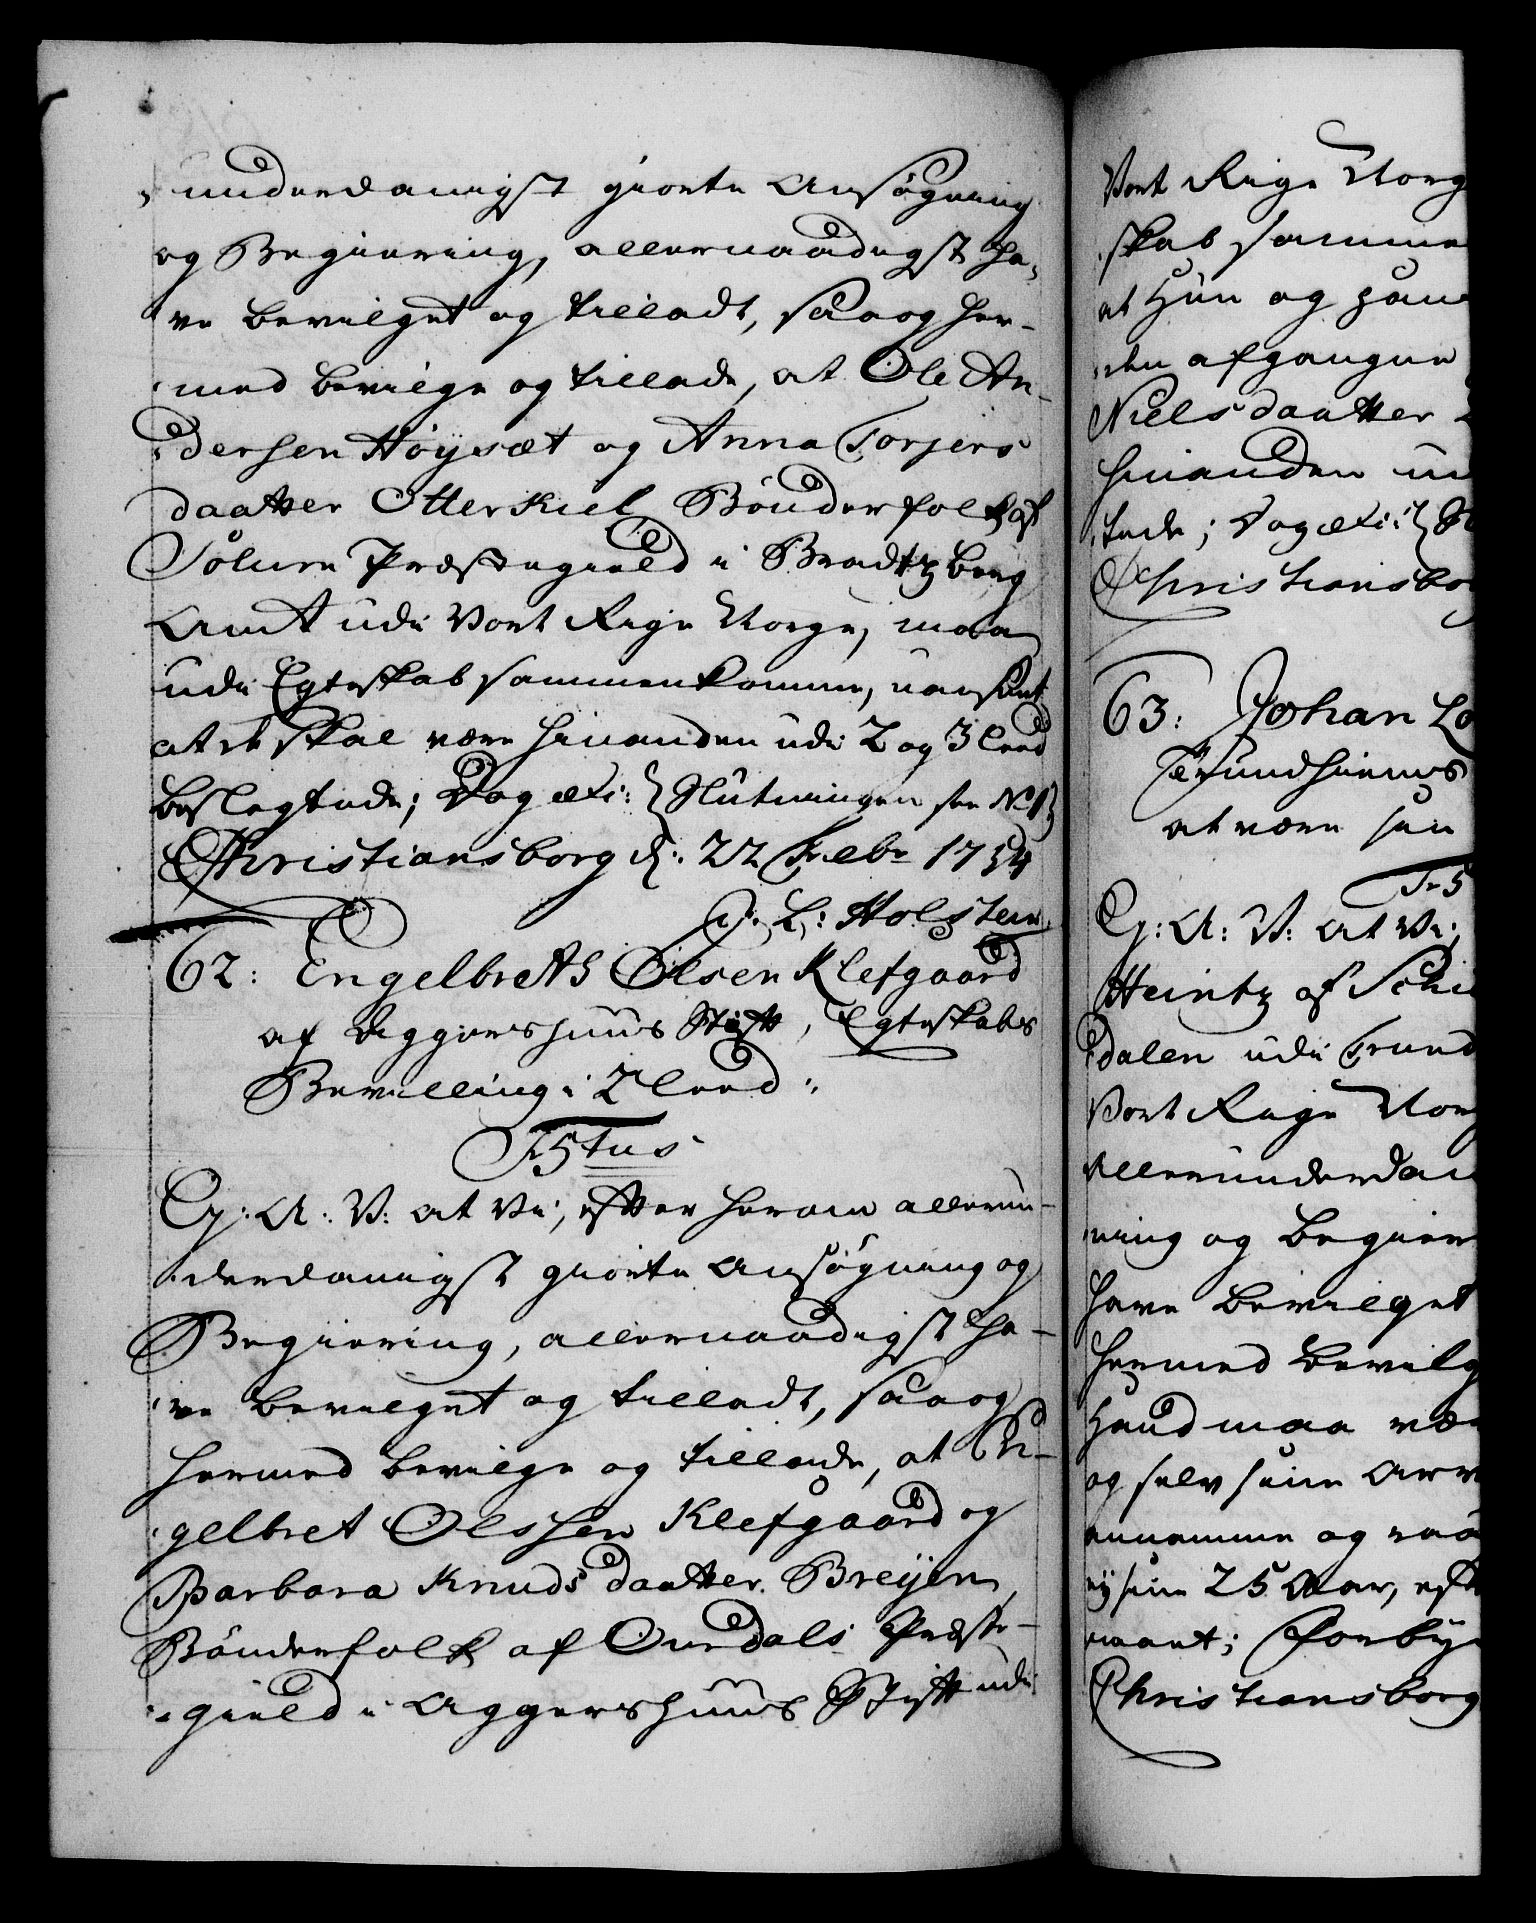 underdanigst giorte Ansøgning
og Begiering, allernaadigst ha-
ve bevilget og tilladt, saa og her-
med bevilge og tillade, at Ole An-
dersen Høysæt og Anna Torjers
daatter Otterkiel Bønderfolk af
Solum Præstegield i Bradtzberg
Amt udi Vort Rige Norge, maa
udi Egteskab sammenkomme, uanseet
at de skal være hinanden udi 2 og 3 Leed
beslegtede; Dog etc: Slutningen see No 1
Christiansborg d: 22 Febr 1754
J. L: Holstein
62: Engelbreth Olsen Klefgaard
af Aggershuus Stift, Egteskabs
Bevilling i 2 Leed.
Txtus
G: A: V: at Vi, efter herom allerun-
derdanigst giorte Ansøgning og
Begiering, allernaadigst ha-
ve bevilget og tilladt, saa og
hermed bevilge og tillade, at En-
gelbret Olssen Klefgaard og
Barbara Knudsdaatter Breyen,
Bønderfolk af Ourdals Præste-
gield i Aggershuus Stift udi
Vort Rige Norg
skab samme
at Hun og han
den afgangne
Nielsdaatter
hinanden u
tede; Dog etc:
Christiansbo
63: Johan Lo
Trundhiems
at være sin
G: A: V: at Vi,
Heintz af
dalen udi Trund
Vort Rige Nor
Allerunderdan
ning og Begier
have bevilget
hermed bevilg
Hand maa væ
og selv sine Arv
annamme og raa
sine 25 Aar, eft
Forby
Christiansborg